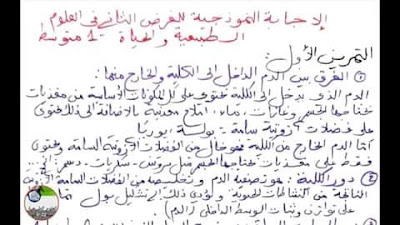 الإجابة النموذجية للفرض الثاني في العلوم
الطبيعية والحياة 1 متوسط
التمرين الأول:
① الفرق بين الدم الداخل إلى الكلية والخارج منها:
الدم الذي يدخل إلى الكلية يحتوي على كل المكونات الأساسية من مغذيات
يحتاجها الجسم وغازات، ماء، أملاح معدنية بالإضافة إلى ذلك يحتوي
على فضلات آزوتية سامة - بولة، يوريا
أما الدم الخارج من الكلية فهو خال من الفضلات الآزوتية السامة ويحتوي
فقط على مغذيات يحتاجها الجسم مثل بروتين - سكريات - دسم
② دور الكلية: هو تصفية الدم وتخليصه من الفضلات السامة
الناتجة عن النشاطات الحيوية ويؤدي ذلك إلى تشكيل بول
على توازن وثبات الوسط الداخلي (الدم).